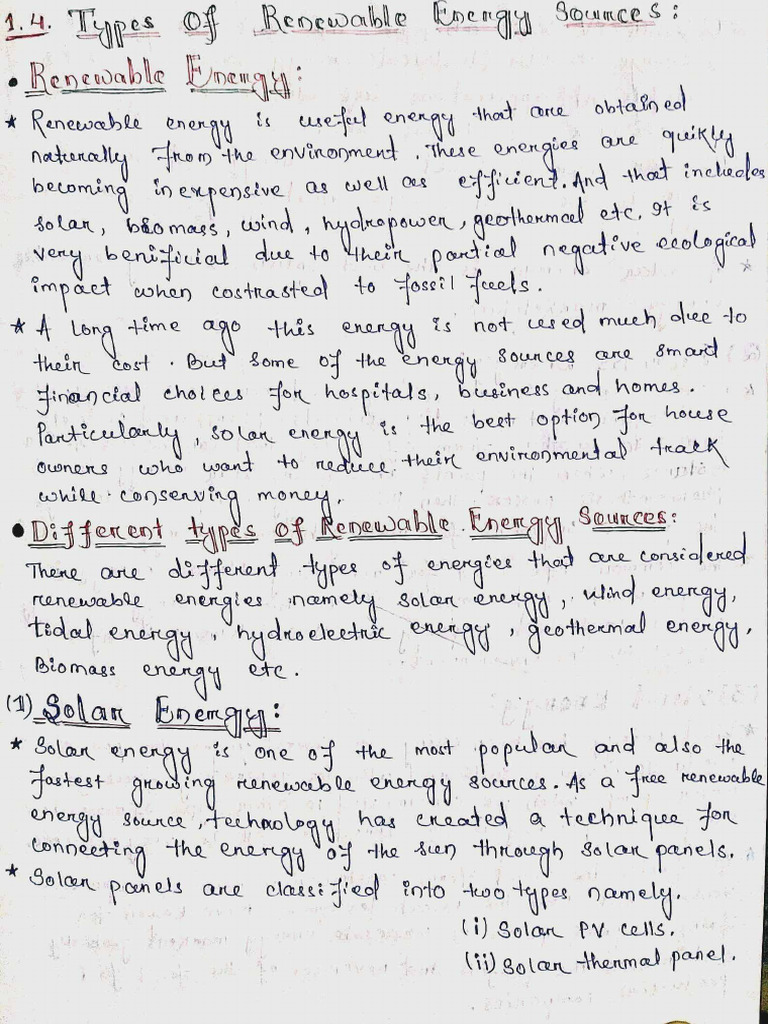 1.4. Types Of Renewable Energy Sources:
• Renewable Energy:
* Renewable energy is useful energy that are obtained
naturally from the environment. These energies are quikly
becoming inexpensive as well as efficient. And that includes
solar, biomass, wind, hydropower, geothermal etc. It is
very benificial due to their partial negative ecological
impact when costrasted to fossil fuels.
* A long time ago this energy is not used much due to
their cost. But some of the energy sources are smard
financial choices for hospitals, business and homes.
Particularly, solar energy is the best option for house
owners who want to reduce their environmental track
while conserving money.
• Different types of Renewable Energy Sources:
There are different types of energies that are considered
renewable energies namely solar energy, wind energy,
tidal energy, hydroelectric energy, geothermal energy,
Biomass energy etc.
(1) Solar Energy:
* Solar energy is one of the most popular and also the
fastest growing renewable energy sources. As a free renewable
energy source, technology has created a technique for
connecting the energy of the sun through solar panels.
* Solar panels are classified into two types namely.
(i) Solar PV cells.
(ii) Solar thermal panel.